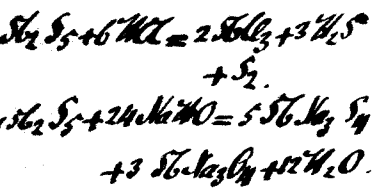 Sb₂S₅+6HCl=2SbCl₃+3H₂S
+S₂.
Sb₂S₅+24NaHO=5SbNa₃S₄
+3SbNa₃O₄+12H₂O.